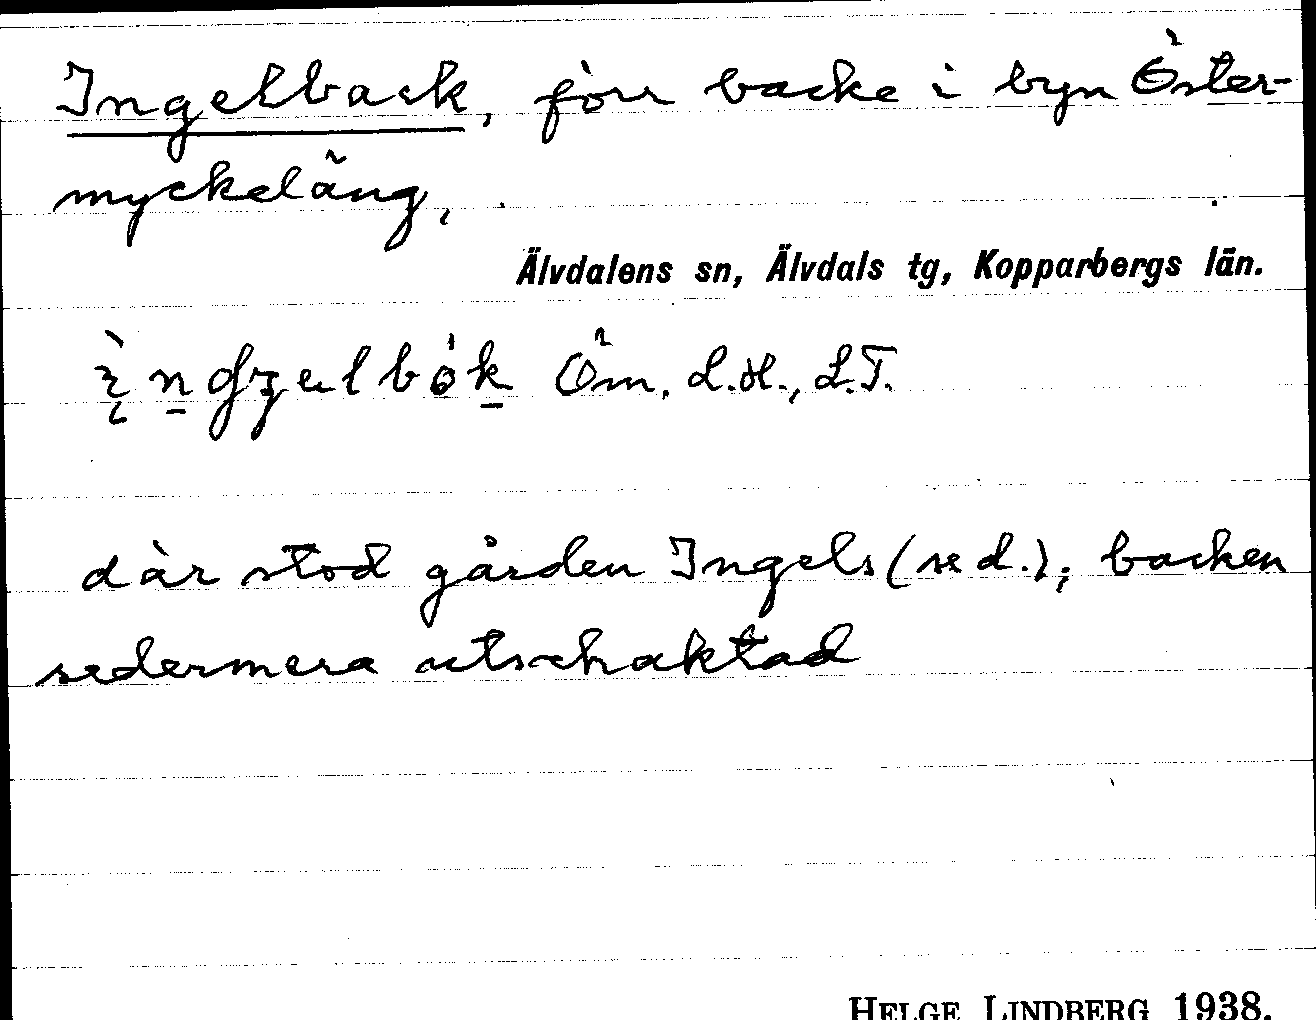 Ingelback, förr backe i byn Öster-
myckeläng,
Älvdalens sn, Älvdals tg, Kopparbergs län.
Öm. L.H., L.T.
där stod gården Ingels (se d.); backen
sedermera utschaktad
HELGE LINDBERG 1938.